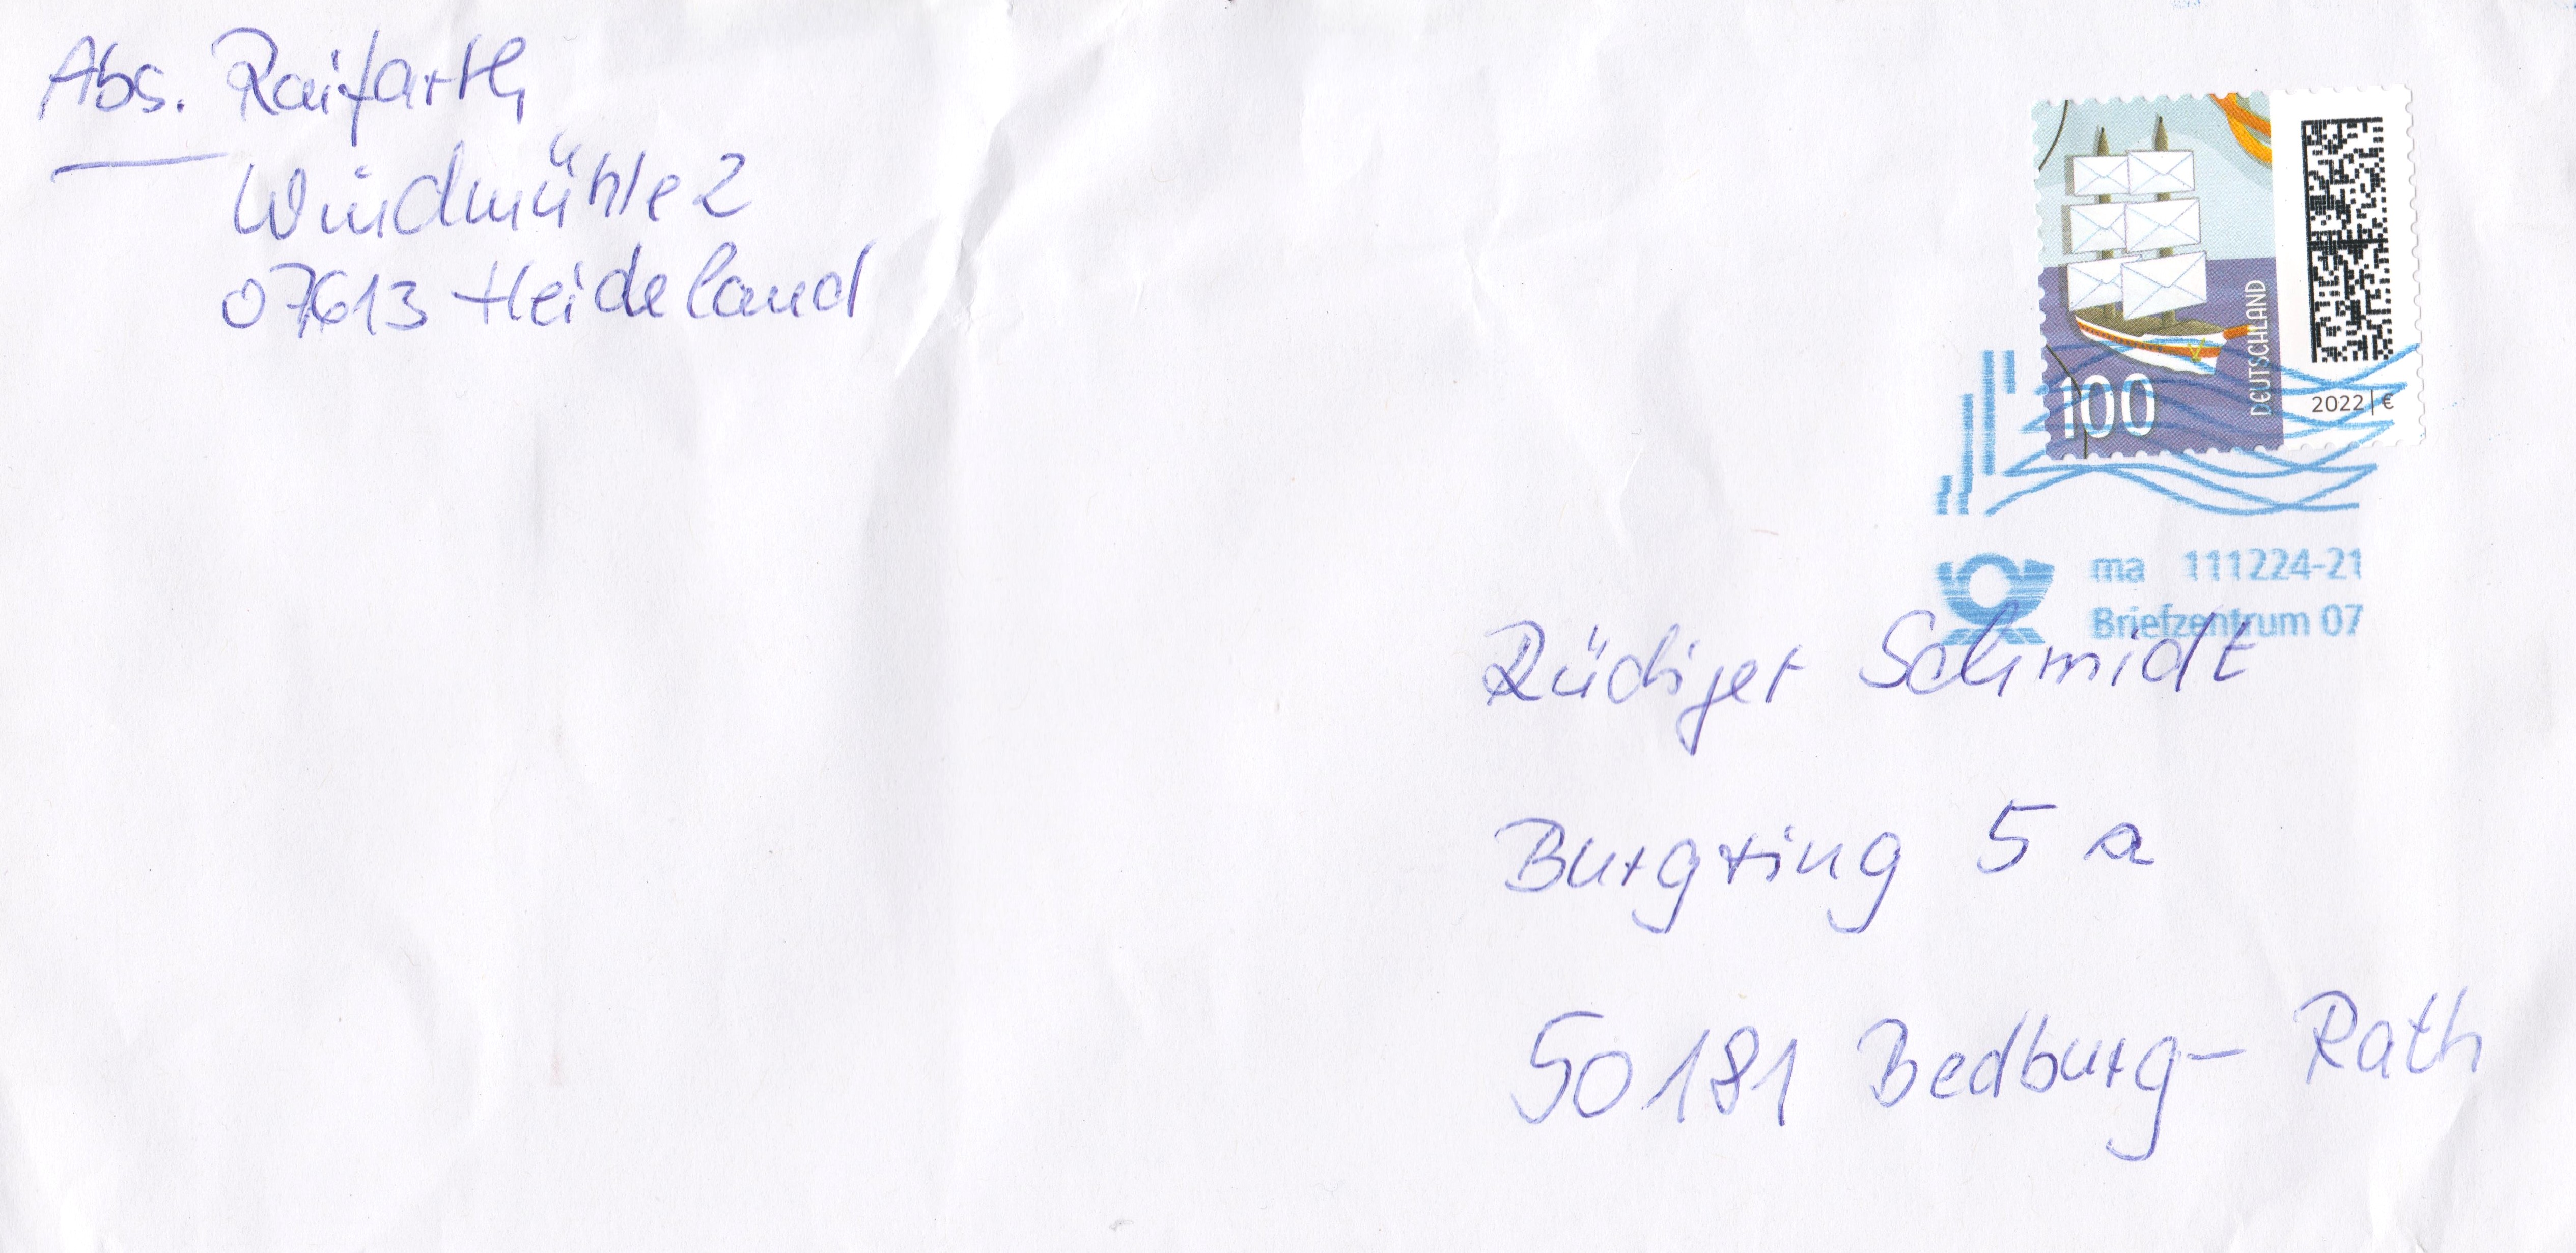 Abs. Raifarth
Windmühle 2
07613 Heideland
DEUTSCHLAND
100
2022 | €
ma 111224-21
Briefzentrum 07
Rüdiger Schmidt
Burgring 5 a
50181 Bedburg - Rath